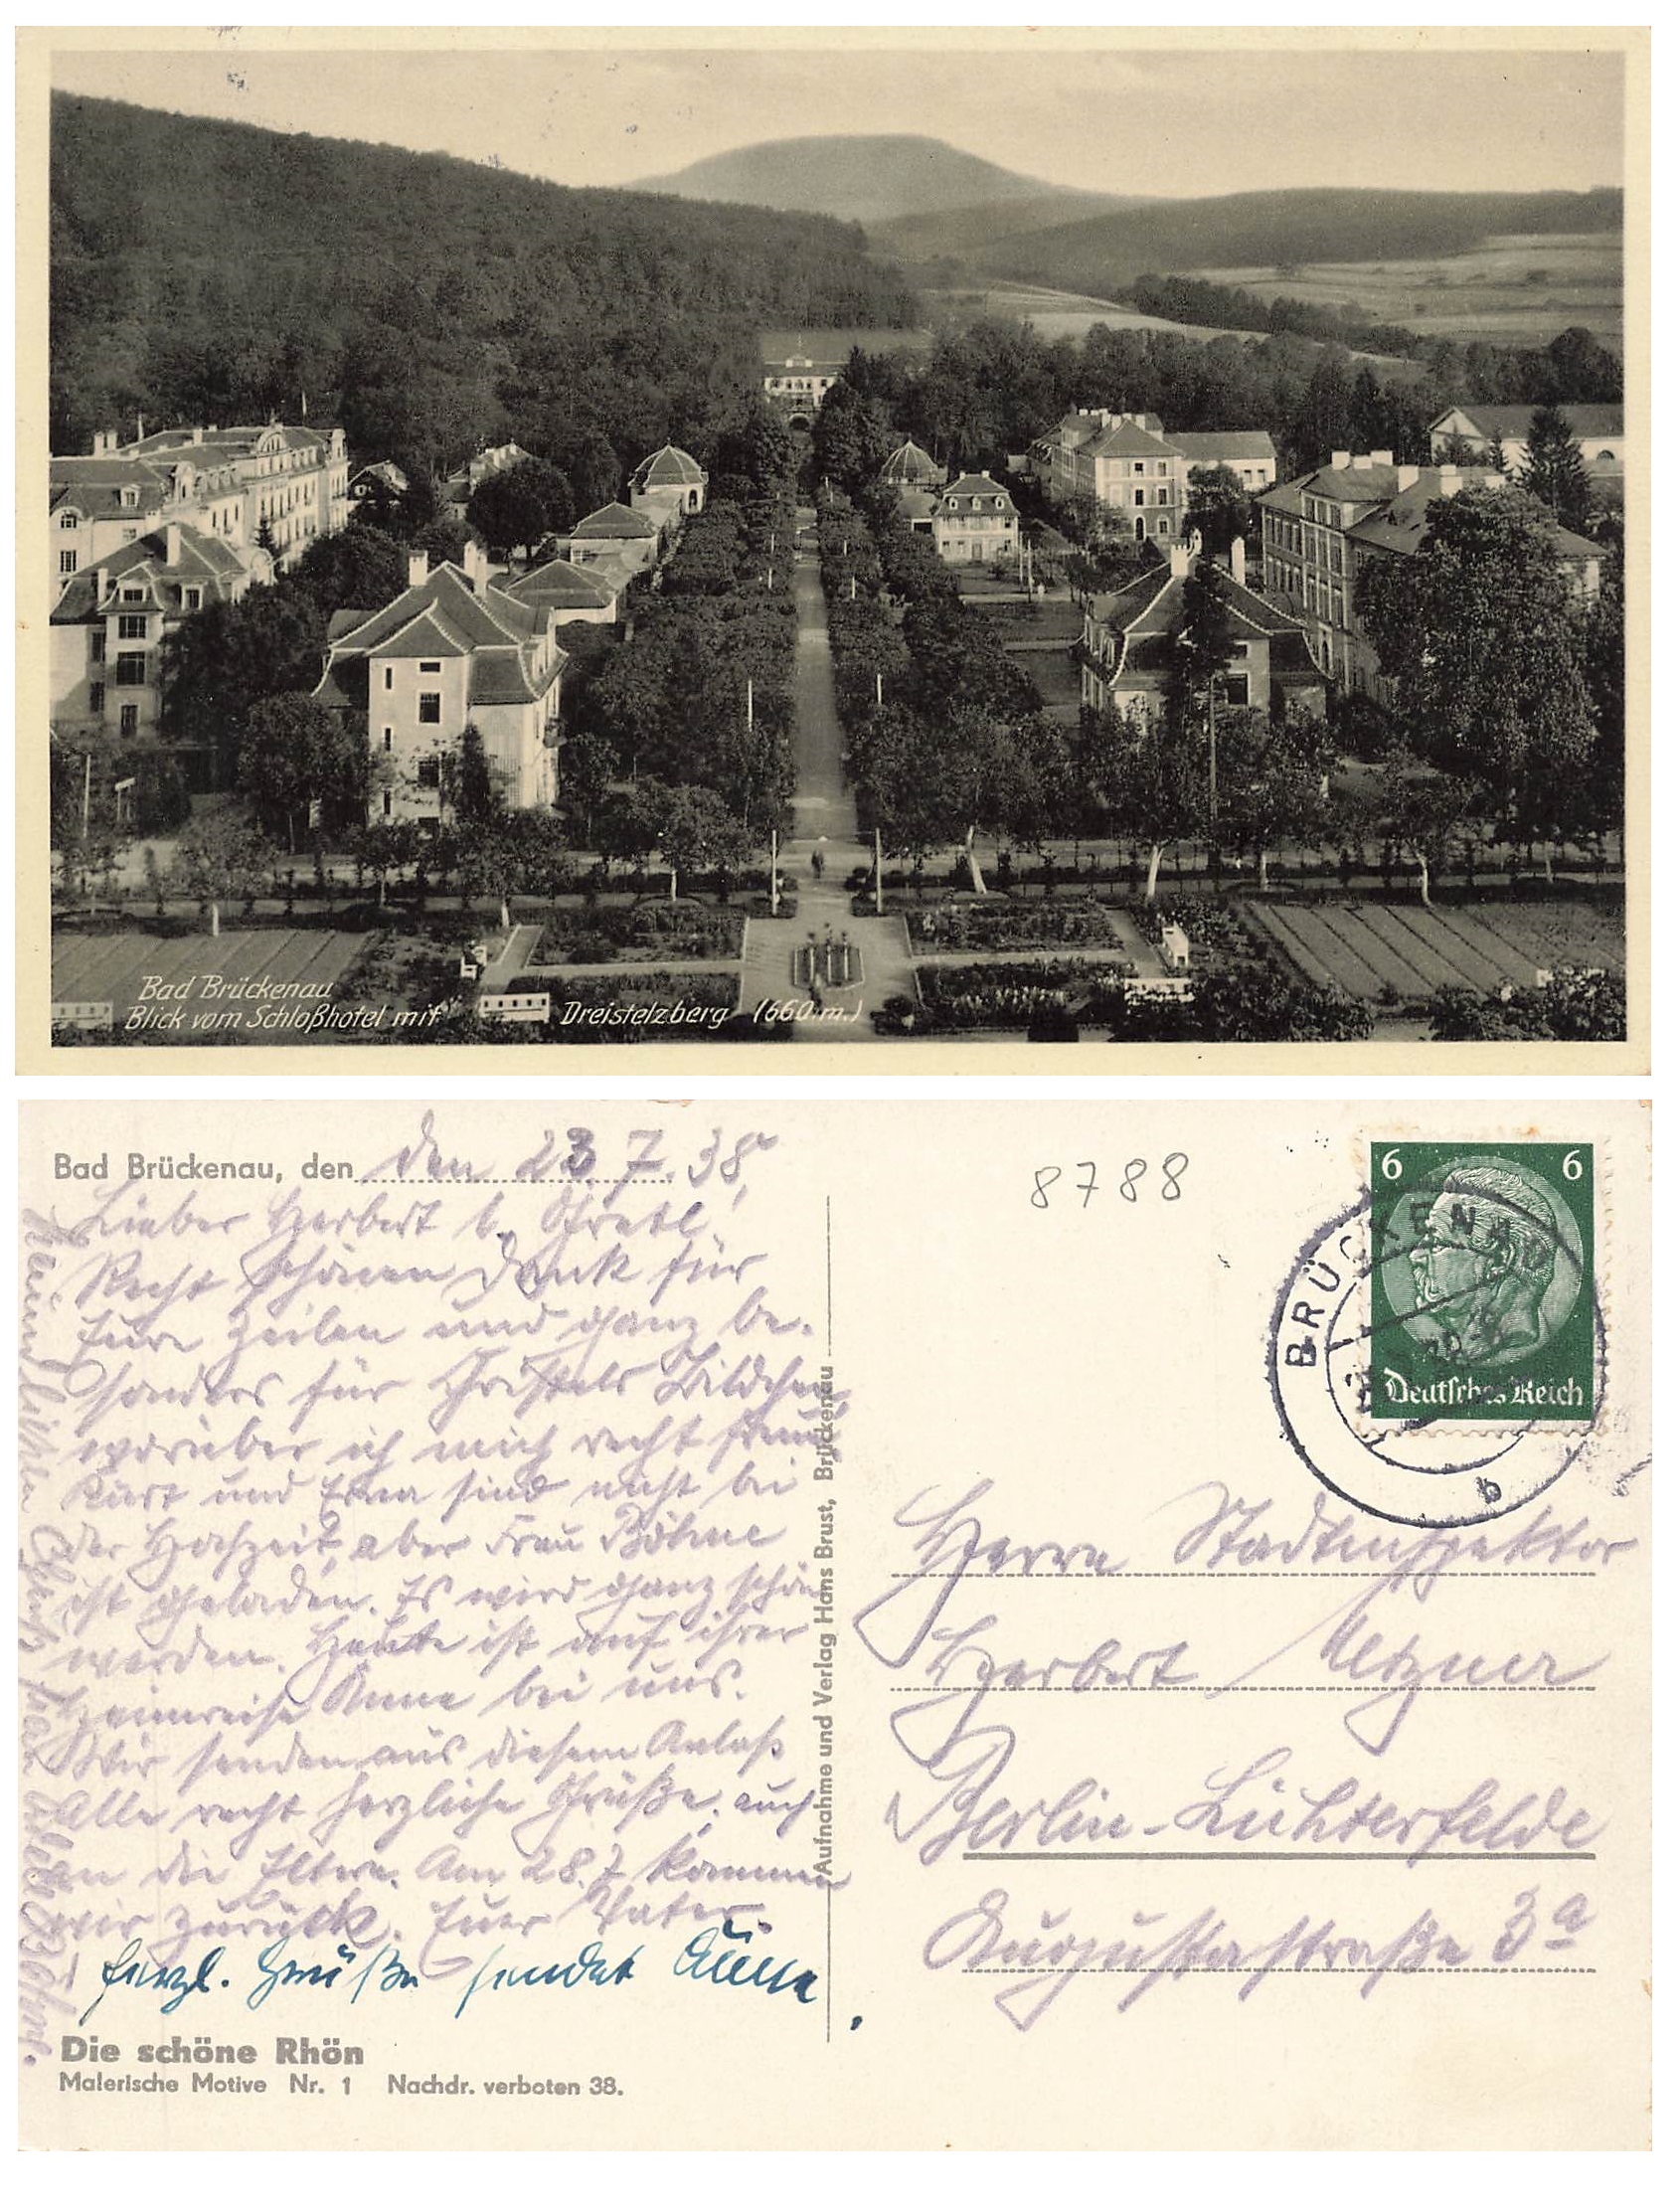 Bad Brückenau
Blick vom Schloßhotel mit Dreistelzberg (660.m.)
Bad Brückenau, den den 23. 7. 38.
Lieber Herbert u. Gretl!
Recht schönen Dank für
Eure Zeilen und ganz be-
sonders für Christels Bildchen,
worüber ich mich recht freue.
Kurt und Erna sind nicht bei
der Hochzeit, aber Frau Böhme
ist geladen. Es wird ganz schön
werden. Heute ist auf ihrer
Heimreise Anne bei uns.
Wir senden aus diesem Anlaß
Alle recht herzliche Grüße, auch
an die Eltern. Am 28.7 kommen
wir zurück. Euer Vater.
herzl. Grüße sendet Anne
Die schöne Rhön
Malerische Motive Nr. 1 Nachdr. verboten 38.
Aufnahme und Verlag Hans Brust, Brückenau
8788
6 6
Deutsches Reich
BRÜCKENAU
b
Herrn Stadtinspektor
Herbert
Berlin-Lichterfelde
Augustastraße 3a